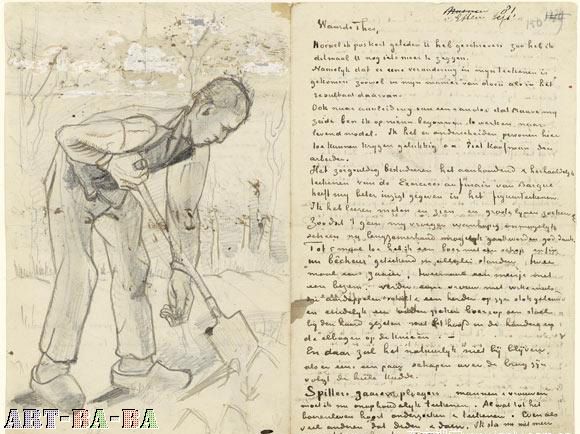 150 149
Waarde Theo,
Hoewel ik pas kort geleden U heb geschreven zoo heb ik
ditmaal U nog iets meer te zeggen.
Namelijk dat er eene verandering in mijn teekenen is
gekomen zoowel in mijn manier van doen als in het
resultaat daarvan.
Ook naar aanleiding van een & ander dat Mauve mij
zeide ben ik op nieuw begonnen te werken naar
levend model. Ik heb er onderscheiden personen hier
toe kunnen krijgen gelukkig o.a. Piet Kaufman den
arbeider.
Het zorgvuldig bestuderen het aanhoudend & herhaaldelijk
teekenen van de Exercices au fusain van Bargue
heeft mij beter inzigt gegeven in het figuurteekenen.
Ik heb leeren meten en zien en groote lijnen zoeken
Zoodat 't geen mij vroeger wanhopig onmogelijk
scheen nu langzamerhand mogelijk gaat worden god dank.
Tot 5 maal toe heb ik een boer met een schop enfin
un bêcheur geteekend in allerlei standen, twee
maal een zaaier, tweemaal een meisje met
een bezem. verder eene vrouw met witte muts
die aardappelen schilt & een herder op zijn stok geleund
en eindelijk een ouden zieken boer op een stoel
bij den haard gezeten met het hoofd in de handen & op
de ellebogen op de knieën.
En daar zal het natuurlijk niet bij blijven,
als er eens een paar schapen over de brug zijn
volgt de heele kudde.
Spitters, zaaiers, ploegers, mannen & vrouwen
moet ik nu onophoudelijk teekenen. Al wat tot het
boerenleven hoort onderzoeken & teekenen. Evenals
veel anderen dat deden & doen. Ik sta nu niet meer
ART-BA-BA